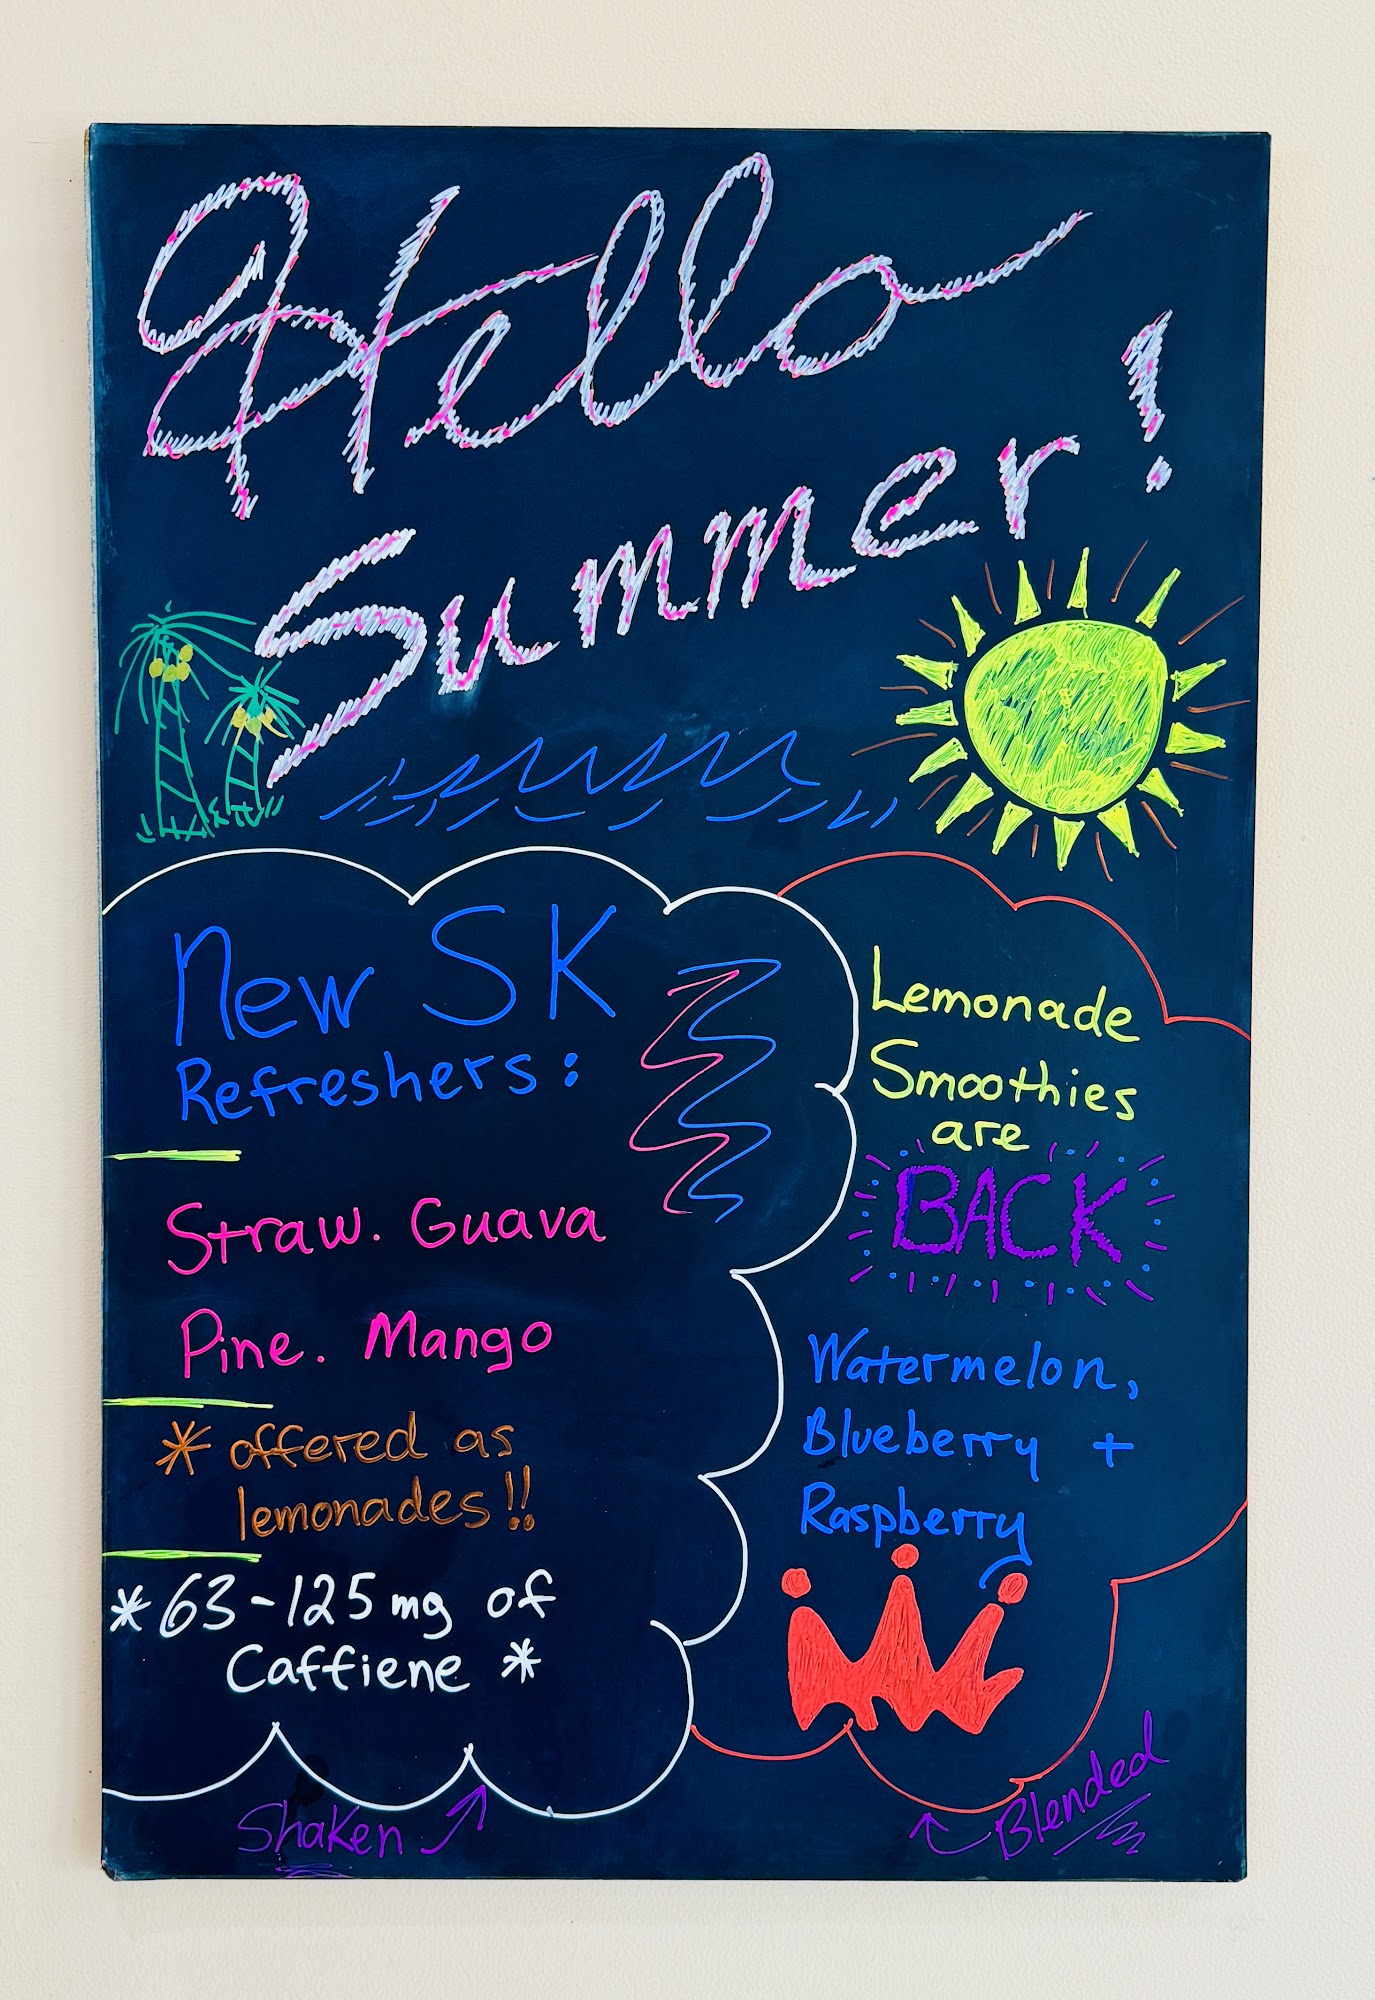 Hello
Summer!
New SK
Refreshers:
Straw. Guava
Pine. Mango
* offered as
lemonades!!
* 63-125mg of
Caffiene *
Shaken
Lemonade
Smoothies
are
BACK
Watermelon,
Blueberry +
Raspberry
Blended